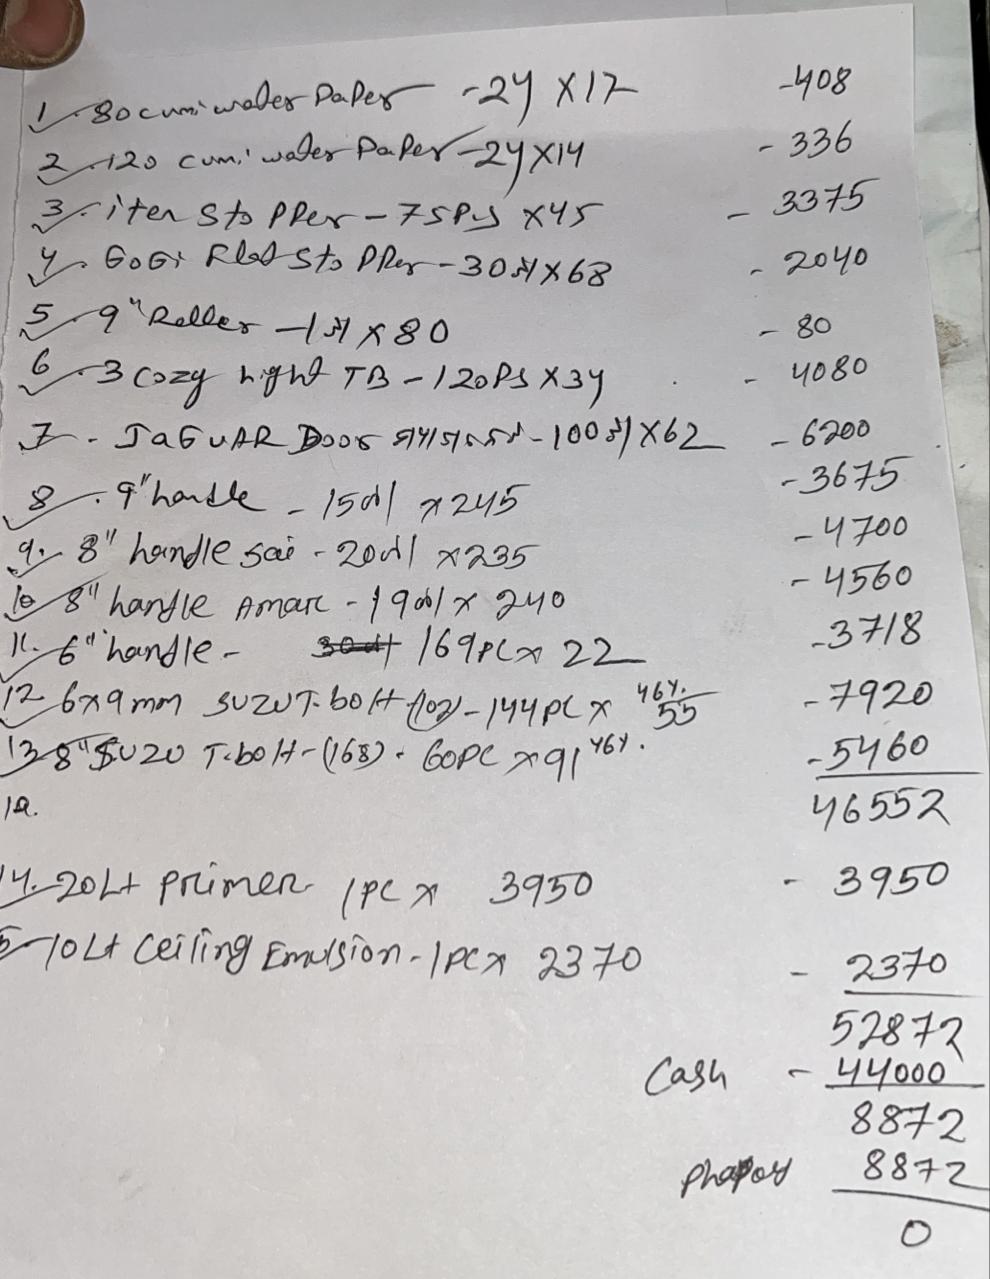 1. 80 cumi water Paper - 24 X 17 - 408
2. 120 cumi water Paper - 24 X 14 - 336
3. iten Sto PPer - 75 Ps X 45 - 3375
4. GoGi Sto PPer - 30 X 68 - 2040
5. 9" Roller - 1 X 80 - 80
6. 3 Cozy night TB - 120 Ps X 34 - 4080
7. JaGuAR Door - 100 X 62 - 6200
8. 9" handle - 15 x 245 - 3675
9. 8" handle sai - 20 x 235 - 4700
10 8" handle Amar - 19 x 240 - 4560
11. 6" handle - 169 PC x 22 - 3718
12 6x9 mm SUZU T.bolt (102) - 144 PC x 55 - 7920
13 8" SUZO T.bolt - (168) - 60 PC x 91 - 5460
46552
14. 20 Lt primer 1 PC x 3950 - 3950
10 Lt Ceiling Emulsion - 1 PC x 2370 - 2370
52872
Cash - 44000
8872
8872
0